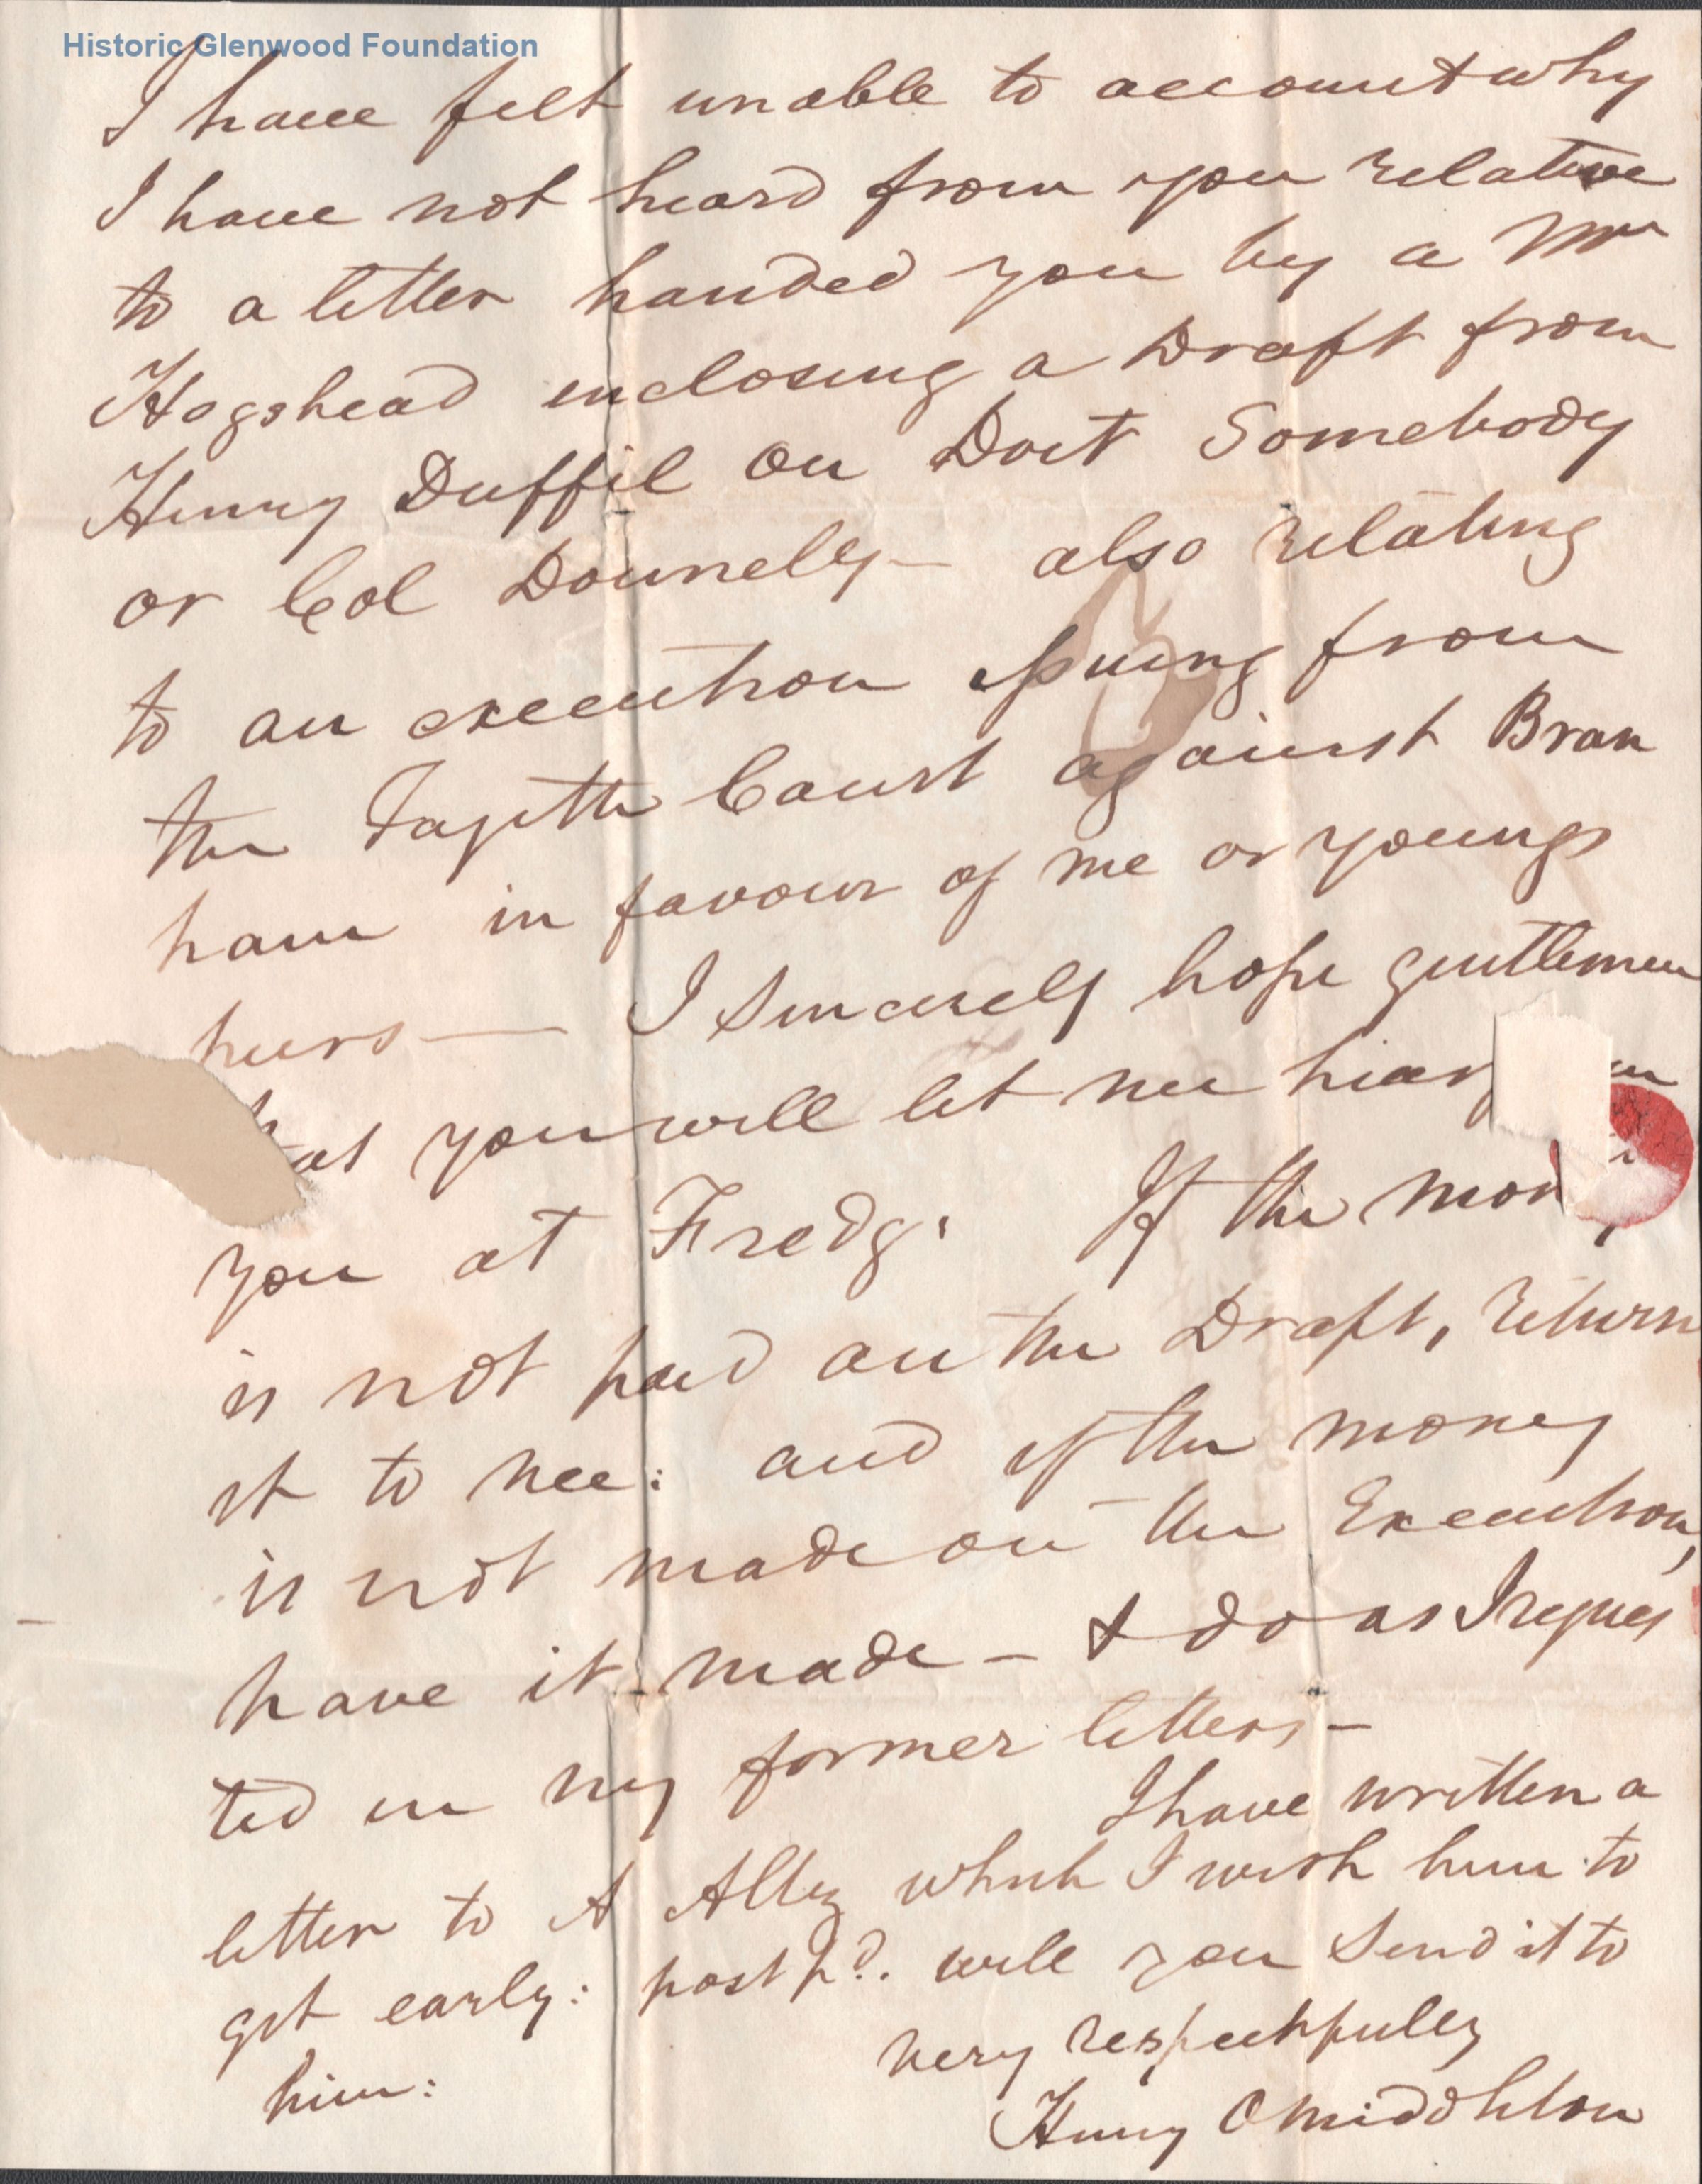 Historic Glenwood Foundation
I have felt unable to account why
I have not heard from you relative
to a letter handed you by a Mr
Hogshead enclosing a Draft from
Henry Duffil on Doct Somebody
or Col Donnely — also relating
to an execution issuing from
the Fayette Court against Bran
ham in favour of me or youngs
heirs — I sincerely hope gentlemen
that you will let me hear
you at Fredg. If the
is not paid on the Draft, return
it to me: and if the money
is not made on the Execution,
have it made — & do as I reques
ted in my former letters —
I have written a
letter to A Alley which I wish him to
get early: post pd. will you send it to
him:
very respectfully
Henry O Middleton